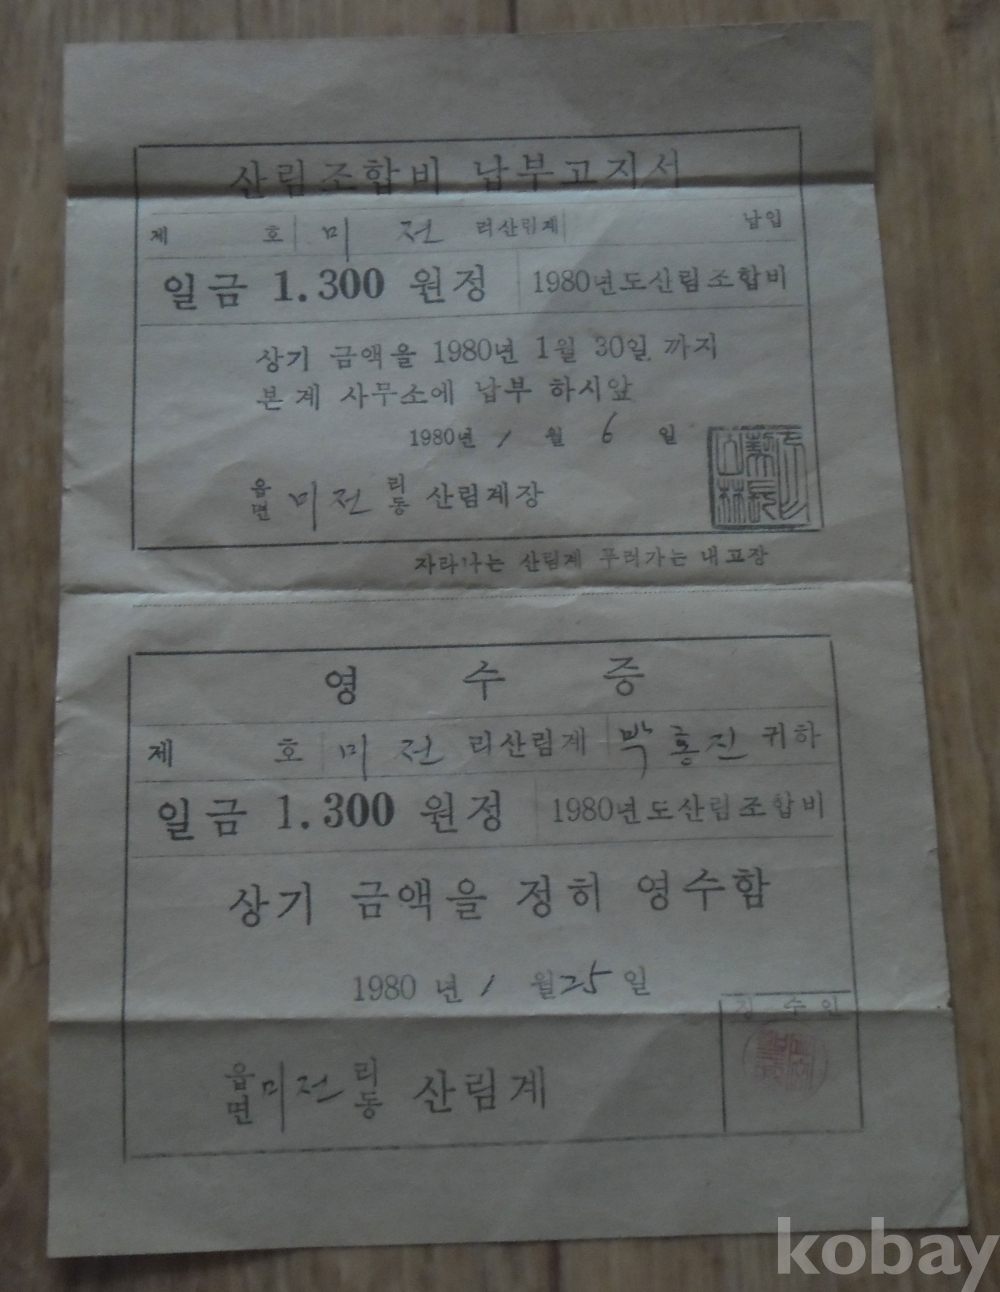 산림조합비 납부고지서
제 호 미전 리산림계 납입
일금 1.300 원정 1980년도산림조합비
상기 금액을 1980년 1월 30일 까지
본계 사무소에 납부 하시앞
1980년 1 월 6 일
읍면 미전 리동 산림계장
자라나는 산림계 푸러가는 내고장
영 수 증
제 호 미전 리산림계 박홍진 귀하
일금 1.300 원정 1980년도산림조합비
상기 금액을 정히 영수함
1980 년 1 월 25 일
영수인
읍면 미전 리동 산림계
kobay